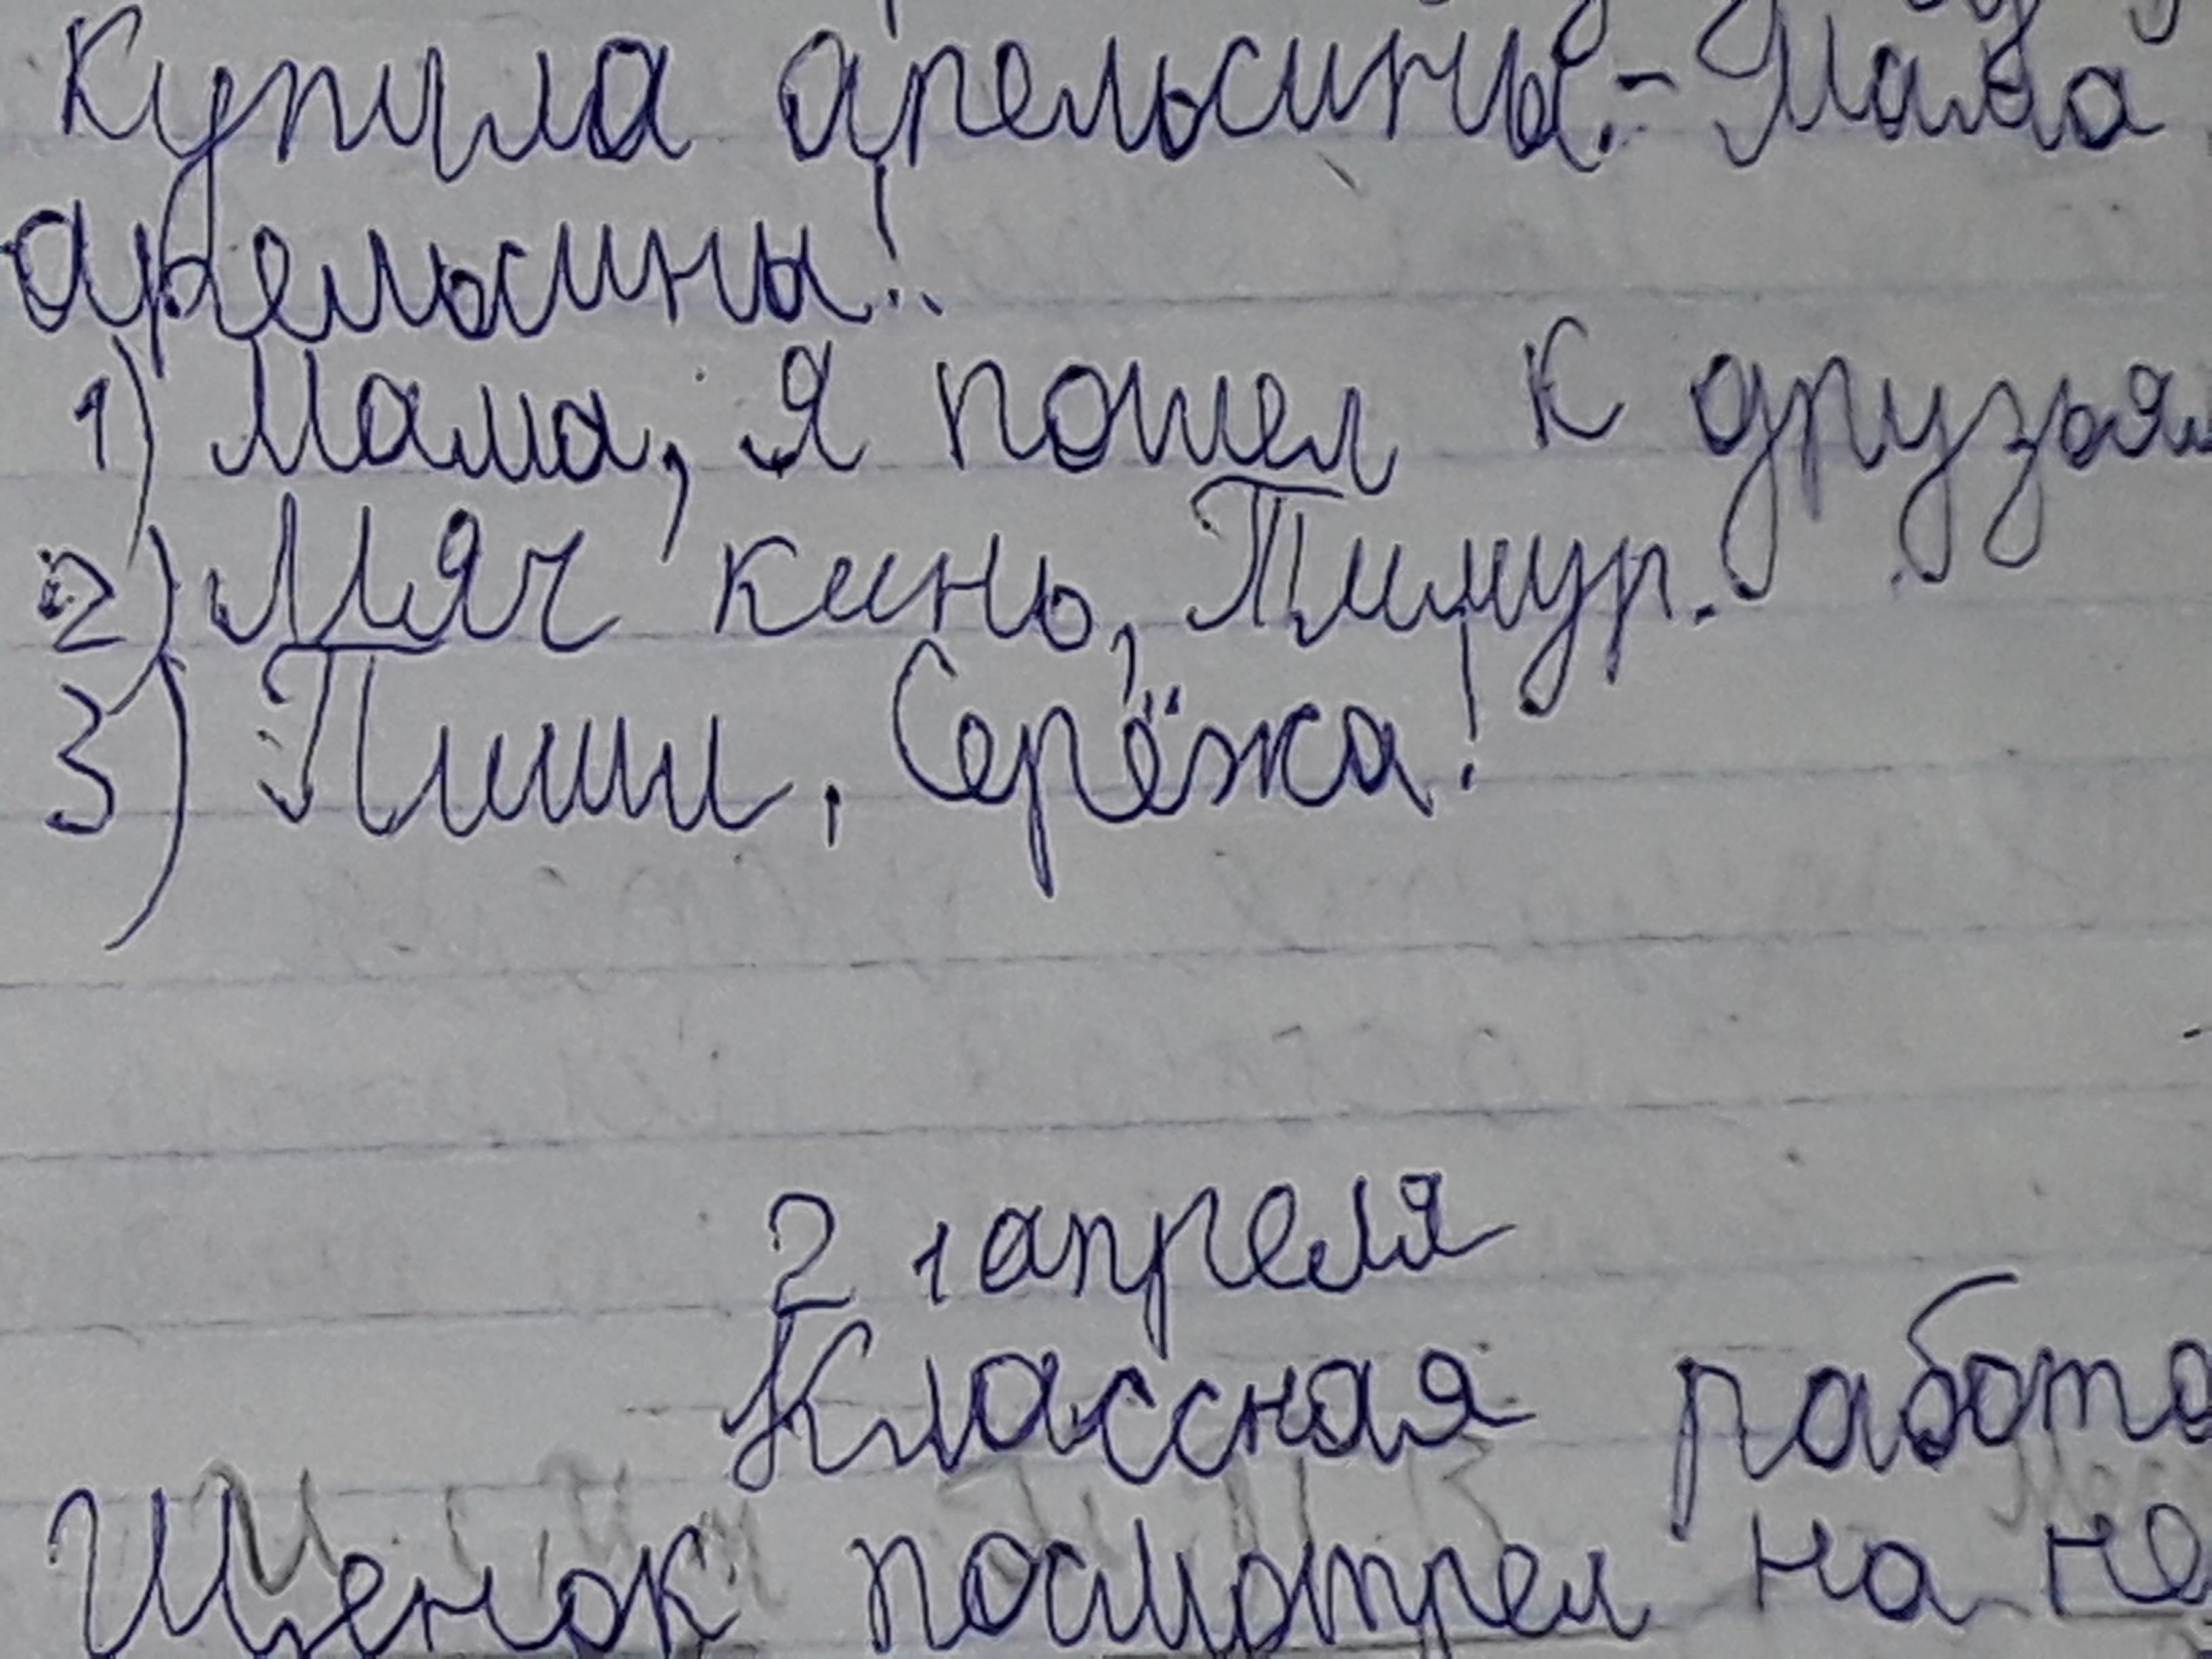 купила арельсины.- Мама
арельсины!..
1) Мама, я пошел к друзьям
2) Мяч кинь, Тимур.
3) Пиши, Серёжа!
2 апреля
Классная работа
Щенок посмотрел на не